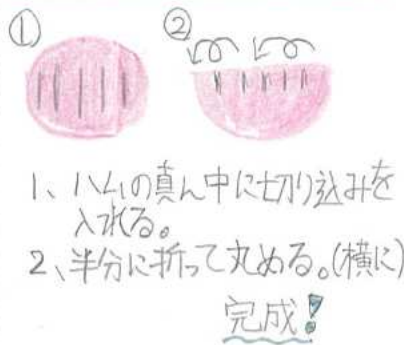 ① ②
1、ハムの真ん中に切り込みを
入れる。
2、半分に折って丸める。(横に)
完成!